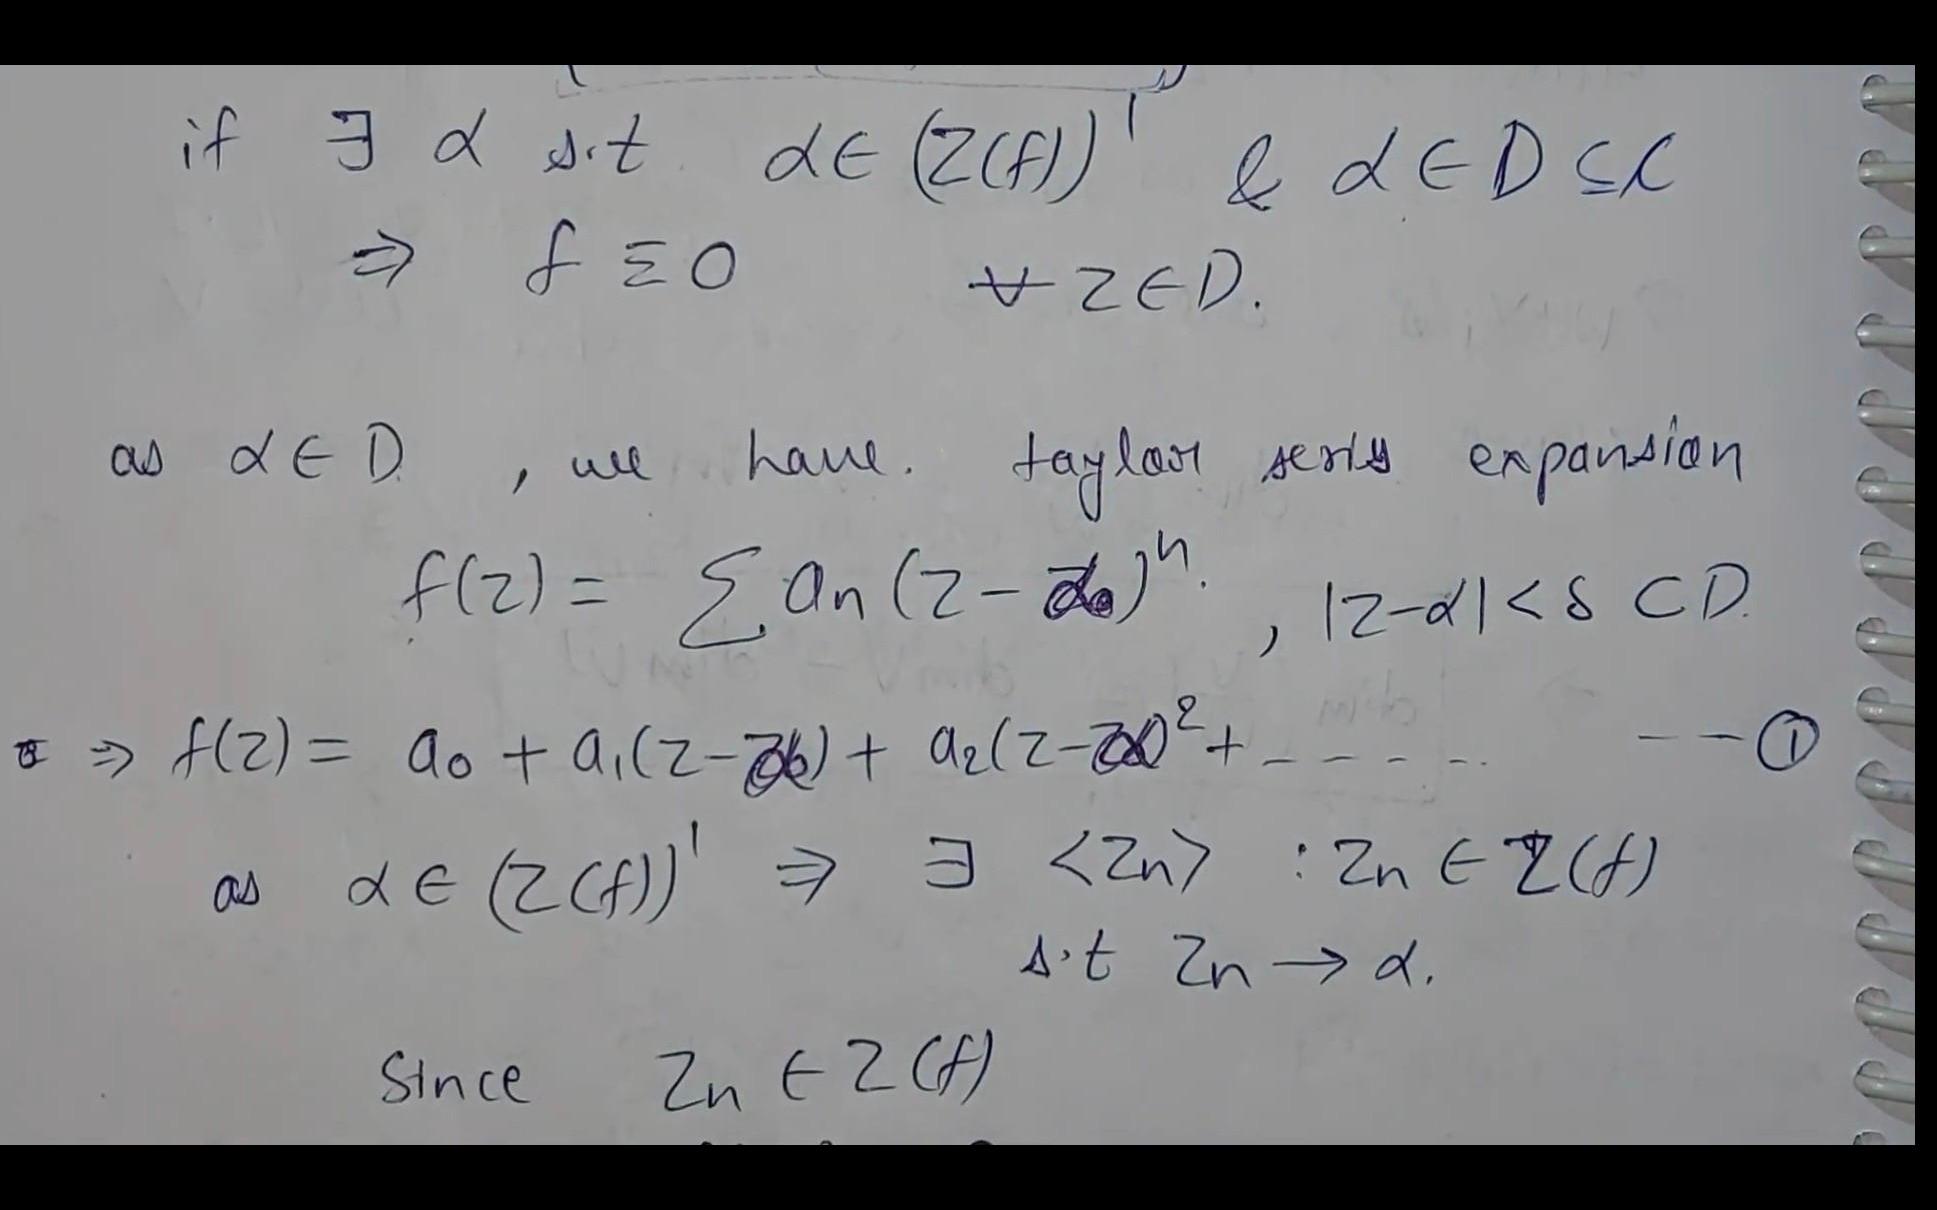 if ∃ α s.t α ∈ (Z(f))' & α ∈ D ⊆ C
⇒ f ≡ 0 ∀ z ∈ D.
as α ∈ D , we have. taylor series expansion
f(z) = Σ an (z - α)^n. , |z-α| < δ ⊂ D.
⇒ f(z) = a0 + a1(z-α) + a2(z-α)^2 + - - - - -. --- ①
as α ∈ (Z(f))' ⇒ ∃ <Zn> : Zn ∈ Z(f)
s.t Zn → α.
Since Zn ∈ Z(f)